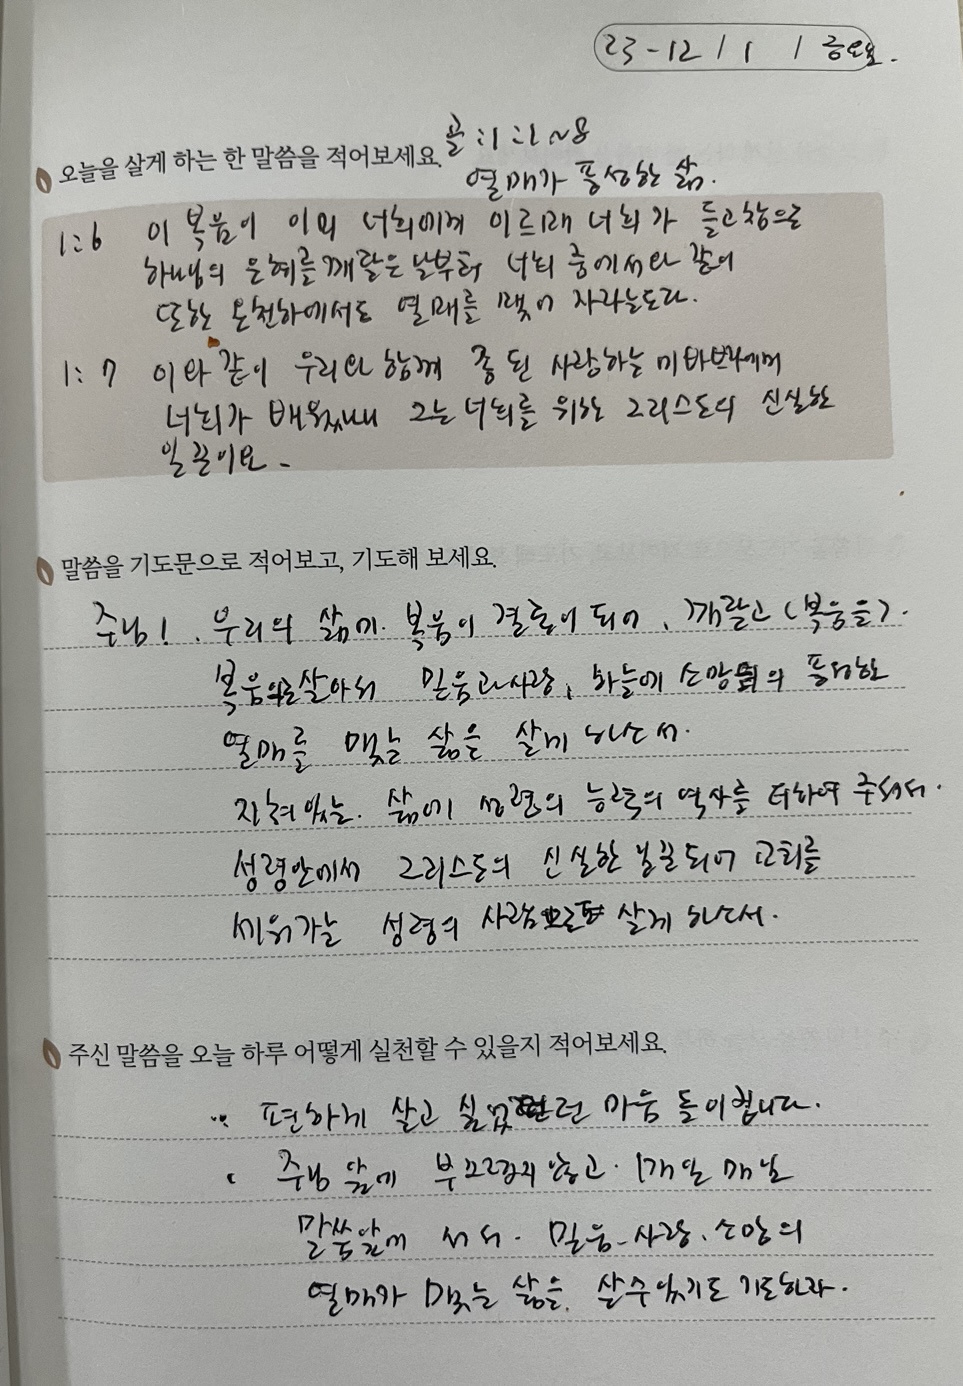 23-12/1/금요일.
오늘을 살게 하는 한 말씀을 적어보세요.
골:1:1~8
열매가 풍성한 삶.
1:6 이 복음이 이미 너희에게 이르매 너희가 듣고 참으로
하나님의 은혜를 깨달은 날부터 너희 중에서와 같이
또한 온천하에서도 열매를 맺어 자라는도다.
1:7 이와 같이 우리와 함께 종 된 사랑하는 에바브라에게
너희가 배웠나니 그는 너희를 위한 그리스도의 신실한
일꾼이요.
말씀을 기도문으로 적어보고, 기도해 보세요.
주님! 우리의 삶에 복음이 결론이 되어, 깨닫고 (복음을).
복음으로 살아서 믿음과 사랑, 하늘에 소망의 풍성한
열매를 맺는 삶을 살게 하소서.
지쳐있는. 삶에 성령의 능력의 역사를 더하여 주셔서.
성령안에서 그리스도의 신실한 일꾼되어 교회를
세워가는 성령의 사람으로 살게 하소서.
주신 말씀을 오늘 하루 어떻게 실천할 수 있을지 적어보세요.
편하게 살고 싶었던 마음 돌이킵니다.
주님 앞에 부끄럽지 않고. 1개월 매일
말씀앞에 서서. 믿음. 사랑. 소망의
열매가 맺는 삶을. 살수있기도 기도하라.